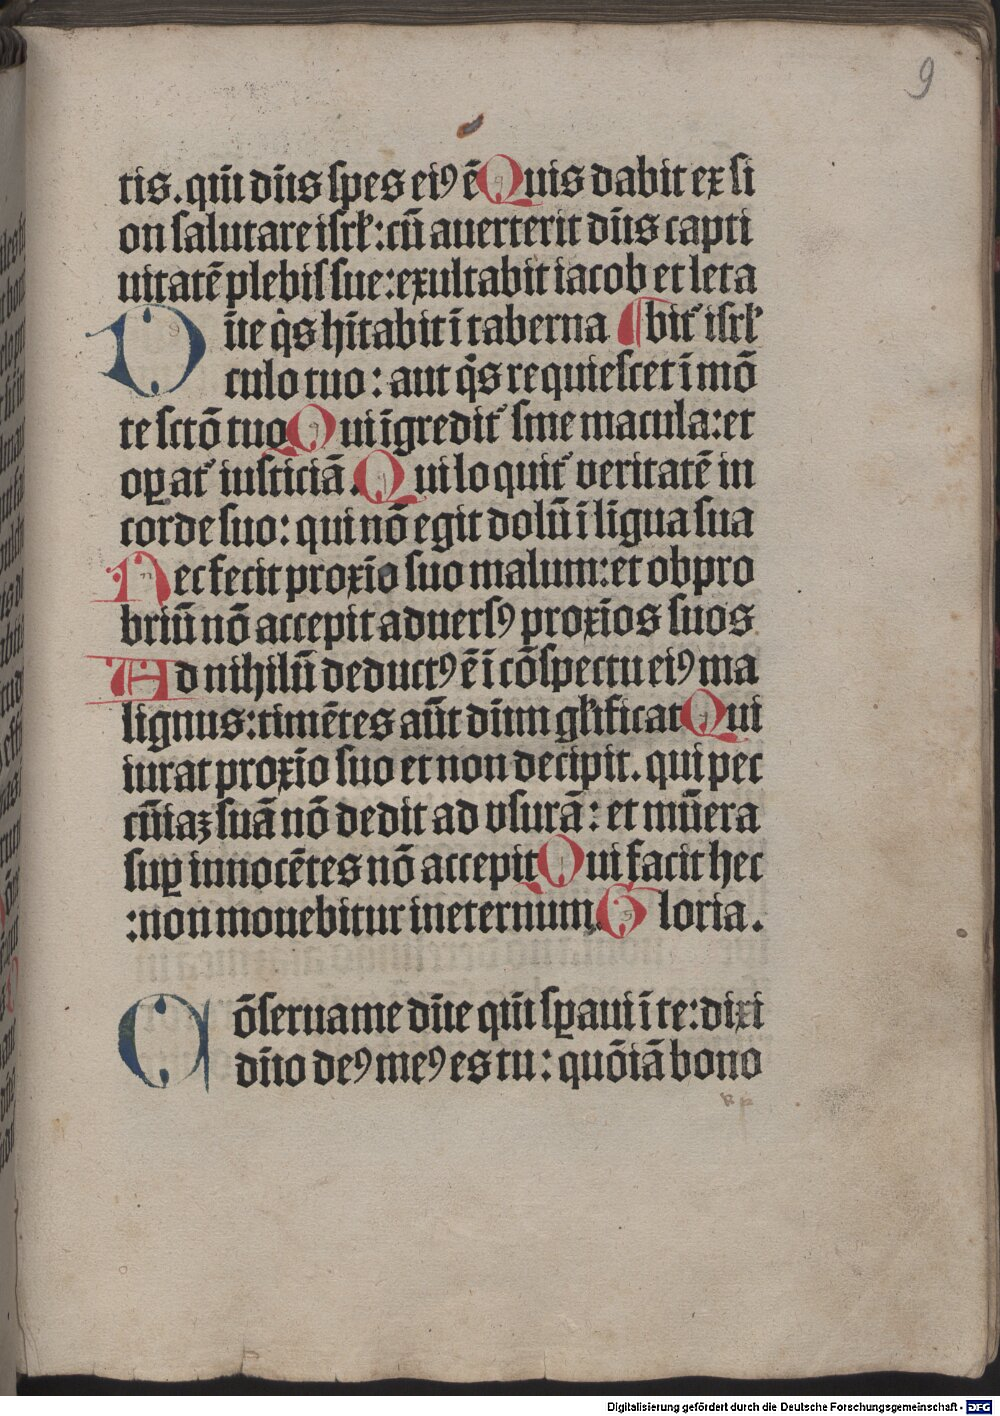 9
tis. qm̄ dn̄s spes ei⁹ ē Quis dabit ex si
on salutare isrl̓: cū auerterit dn̄s capti
uitatē plebis sue: exultabit iacob et leta
Dn̄e q̇s hītabit ī taberna ¶ bit᷑ isrl̓
culo tuo: aut q̇s requiescet ī mō
te sctō tuo Qui īgredit᷑ sine macula: et
oꝑat᷑ iusticiā. Qui loquit᷑ veritatē in
corde suo: qui nō egit dolū ī ligua sua
Nec fecit proxīo suo malum: et obpro
briū nō accepit aduers⁹ proxīos suos
Ad nihilū deduct⁹ ē ī cōspectu ei⁹ ma
lignus: timētes aūt dīnm gl̓ificat Qui
iurat proxīo suo et non decipit. qui pec
cūiaꝫ suā nō dedit ad vsurā: et mūera
suꝑ innocētes nō accepit Qui facit hec
: non mouebitur ineternum. Gloria.
Cōserua me dn̄e qm̄ sꝑaui ī te: dixi
dn̄o de⁹ me⁹ es tu: quōiā bono
Digitalisierung gefördert durch die Deutsche Forschungsgemeinschaft - DFG